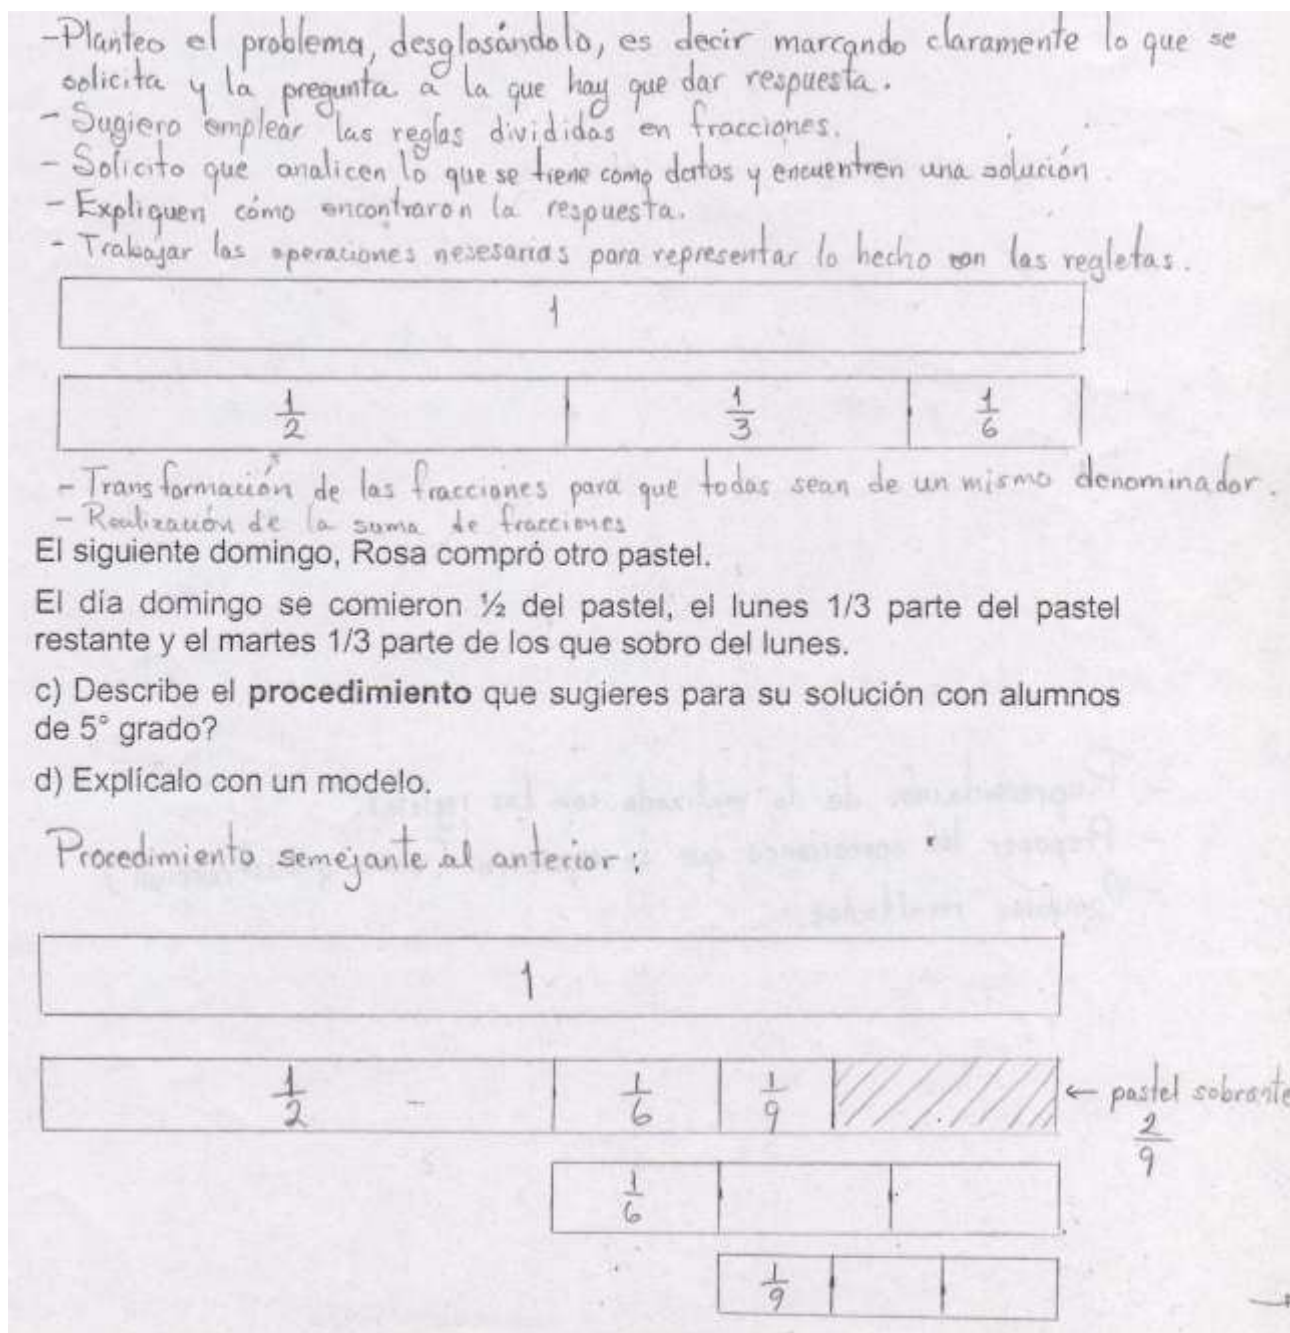 -Planteo el problema, desglosándolo, es decir marcando claramente lo que se
solicita y la pregunta a la que hay que dar respuesta.
- Sugiero emplear las reglas divididas en fracciones.
- Solicito que analicen lo que se tiene como datos y encuentren una solución.
- Expliquen cómo encontraron la respuesta.
- Trabajar las operaciones nesesarias para representar lo hecho con las regletas.
1
1/2 1/3 1/6
- Transformación de las fracciones para que todas sean de un mismo denominador.
- Realización de la suma de fracciones
El siguiente domingo, Rosa compró otro pastel.
El día domingo se comieron ½ del pastel, el lunes 1/3 parte del pastel
restante y el martes 1/3 parte de los que sobro del lunes.
c) Describe el procedimiento que sugieres para su solución con alumnos
de 5° grado?
d) Explícalo con un modelo.
Procedimiento semejante al anterior:
1
1/2 - 1/6 1/9 ← pastel sobrante
2/9
1/6
1/9